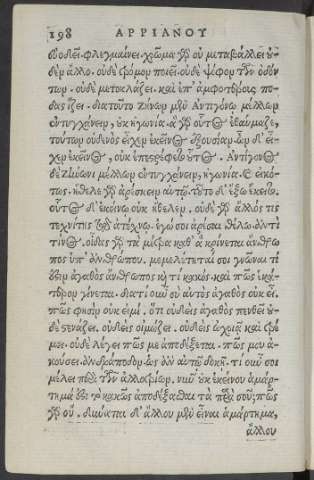 198 ΑΡΡΙΑΝΟΥ
οὐδὲν φλεγμαίνει. χρῶμα γὰρ οὐ μεταβάλλει οὐ-
δὲν ἄλλο. οὐδὲ τρόμον ποιεῖ. οὐδὲ ψόφον τῶν ὀδόν
των. οὐδὲ μετοκλάζει. καὶ ἐπ' ἀμφοτέρους πό-
δας ἵζει. διατοῦτο ζήνων μὲν Ἀντιγόνῳ μέλλων
ἐντυγχάνειν, οὐκ ἠγωνία. ἃ γὰρ οὗτος ἐθαύμαζε,
τούτων οὐδενὸς εἶχεν ἐκεῖνος ἐξουσίαν. ὧν δ' εἶ-
χεν ἐκεῖνος, οὐκ ἐπεστρέφετο οὗτος. Ἀντίγονος
δὲ ζήνωνι μέλλων ἐντυγχάνειν, ἠγωνία. καὶ εἰκό-
τως. ἤθελε γὰρ ἀρέσκειν αὐτῷ. τοῦτο δ' ἔξω ἔκειτο.
οὗτος δ' ἐκείνῳ οὐκ ἤθελεν. οὐδὲ γὰρ ἄλλός τις
τεχνίτης τῷ ἀτέχνῳ. ἐγώ σοι ἀρέσαι θέλω. ἀντὶ
τίνος. οἶδας γὰρ τὰ μέτρα καθ' ἃ κρίνεται ἄνθρω
πος ὑπ' ἀνθρώπου. μεμελέτηταί σοι γνῶναι τί
ἐστιν ἀγαθὸς ἄνθρωπος καὶ τί κακός. καὶ πῶς ἑκά-
τερον γίνεται. διατί οὖν σὺ αὐτὸς ἀγαθὸς οὐκ εἶ.
πῶς φησὴν οὐκ εἰμί. ὅτι οὐδεὶς ἀγαθὸς πενθεῖ οὐ-
δὲ στενάζει. οὐδεὶς οἰμώζει. οὐδεὶς ὠχριᾷ καὶ τρέ
μει. οὐδὲ λέγει πῶς με ἀποδέξεται. πῶς μου ἀ-
κούσει. ἀνδράποδον. ὡς ἂν αὐτῷ δοκῇ. τί οὖν σοι
μέλει περὶ τῶν ἀλλοτρίων. νῦν οὐκ ἐκείνου ἁμάρ-
τημά ἐστι τὸ κακῶς ἀποδέξασθαι τὰ παρὰ σοῦ; πῶς
γὰρ οὔ. δύναται δ' ἄλλου μὲν εἶναι ἁμάρτημα,
ἄλλου